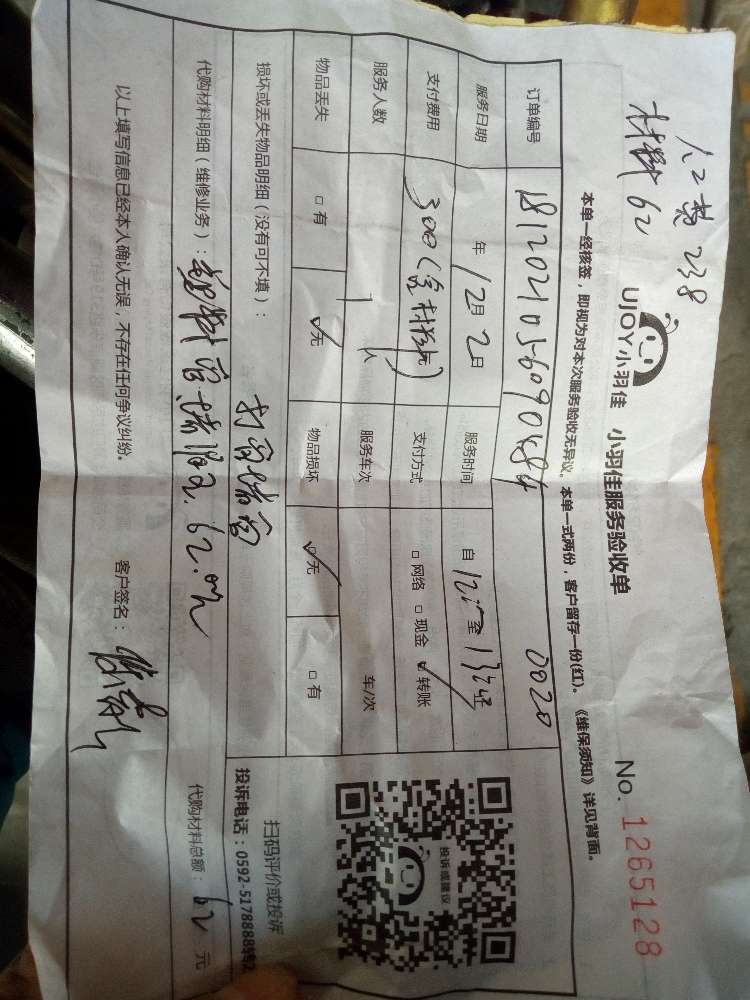 人工费 238
材料 62
UJOY小羽佳 小羽佳服务验收单
No. 1265128
本单一经核签，即视为对本次服务验收无异议。本单一式两份，客户留存一份(红)。《维保须知》详见背面。
订单编号 1812021056090484 0020
服务日期 年 12月 2日 服务时间 自 至
支付费用 300（含材料） 元 支付方式 □ 网络 □ 现金 ☑ 转账
服务人数 1 人 服务车次 车/次
物品丢失 □ 有 ☑ 无 物品损坏 ☑ 无 □ 有
损坏或丢失物品明细（没有可不填）：
代购材料明细（维修业务）： 62.0元
代购材料总额： 62 元
以上填写信息已经本人确认无误，不存在任何争议纠纷。
客户签名：
投诉或建议
扫码评价或投诉
投诉电话：0592-5178888转2